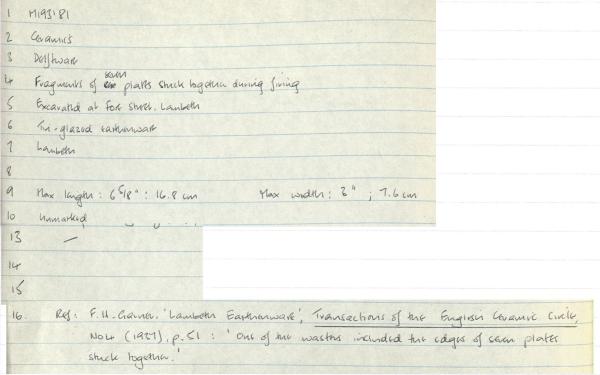 1 M193'81
2 Ceramics
3 Delftware
4 Fragments of seven plates stuck together during firing
5 Excavated at Fore Street, Lambeth
6 Tin-glazed earthenware
7 Lambeth
8
9 Max length: 6 5/8" : 16.8 cm Max width: 3" ; 7.6 cm
10 Unmarked
13 —
14
15
16. Ref: F.H. Garner. 'Lambeth Earthenware', Transactions of the English Ceramic Circle,
No 4 (1937), p.51 : 'One of the wasters included the edges of seven plates
stuck together.'